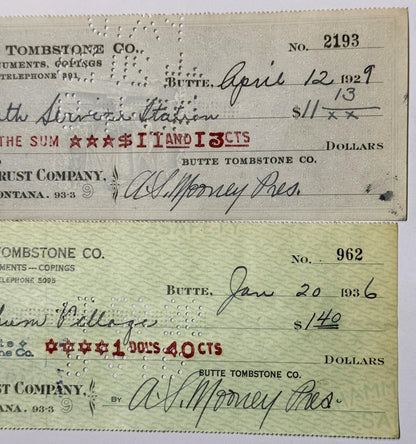 TOMBSTONE CO.
NUMENTS, COPINGS
TELEPHONE 391
No. 2193
BUTTE, April 12 1929
th Service Station $11 13/xx
THE SUM ★★★$11 AND 13 CTS
DOLLARS
BUTTE TOMBSTONE CO.
RUST COMPANY,
ONTANA. 93-3 9
A. S. Mooney Pres.
TOMBSTONE CO.
MENTS—COPINGS
TELEPHONE 5095
No. 962
BUTTE, Jan 20 1936
Village $1 40
✡✡✡✡1 DOLS 40 CTS
ne Co.
DOLLARS
BUTTE TOMBSTONE CO.
ST COMPANY,
TANA. 93-3 9
BY A. S. Mooney Pres.